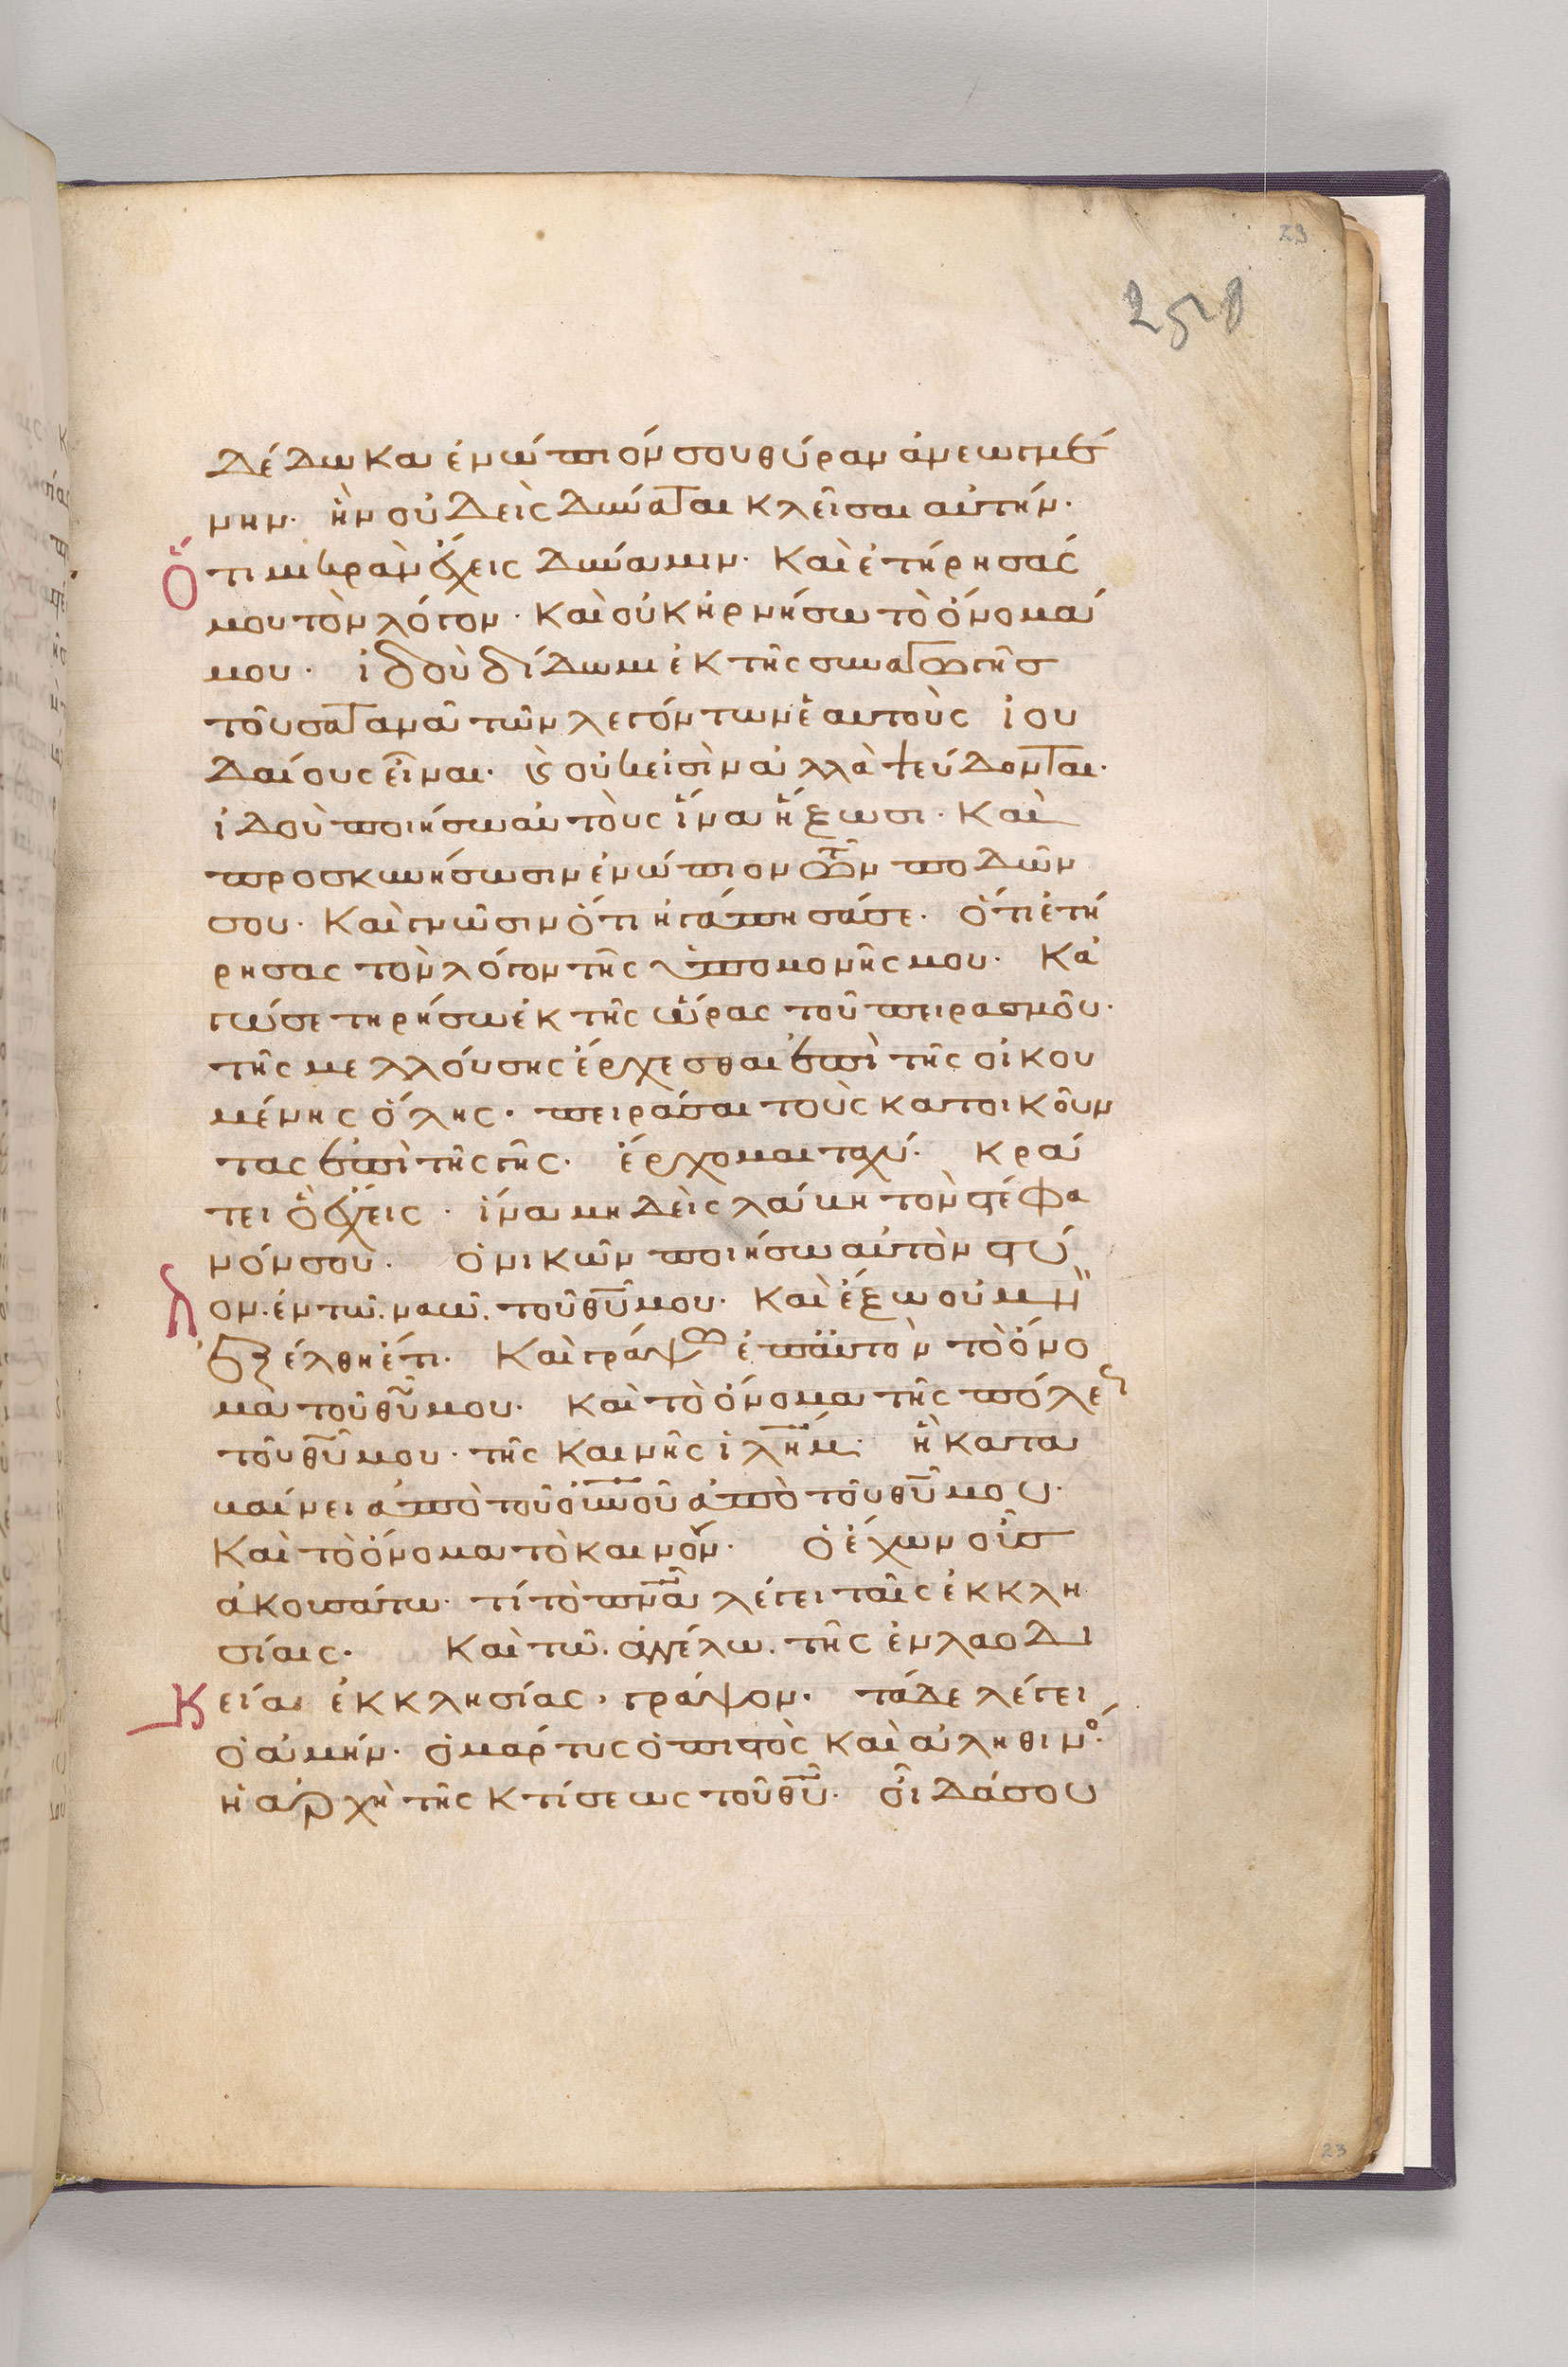 23
δέδωκα ἐνώπιόν σου θύραν ἀνεωγμέ
νην. ἣν οὐδεὶς δύναται κλεῖσαι αὐτήν.
ὅτι μικρὰν ἔχεις δύναμιν. καὶ ἐτήρησάς
μου τὸν λόγον. καὶ οὐκ ἠρνήσω τὸ ὄνομά
μου. ἰδοὺ δίδωμι ἐκ τῆς συναγωγῆς
τοῦ σατανᾶ τῶν λεγόντων ἑαυτοὺς ἰου
δαίους εἶναι. καὶ οὐκ εἰσὶν ἀλλὰ ψεύδονται.
ἰδοὺ ποιήσω αὐτοὺς ἵνα ἥξωσι. καὶ
προσκυνήσωσιν ἐνώπιον τῶν ποδῶν
σου. καὶ γνῶσιν ὅτι ἠγάπησά σε. ὅτι ἐτή
ρησας τὸν λόγον τῆς ὑπομονῆς μου. κἀ
γώ σε τηρήσω ἐκ τῆς ὥρας τοῦ πειρασμοῦ.
τῆς μελλούσης ἔρχεσθαι ἐπὶ τῆς οἰκου
μένης ὅλης. πειράσαι τοὺς κατοικοῦν
τας ἐπὶ τῆς γῆς. ἔρχομαι ταχύ. κρά
τει ὃ ἔχεις. ἵνα μηδεὶς λάβῃ τὸν στέφα
νόν σου. ὁ νικῶν ποιήσω αὐτὸν στύ
λον. ἐν τῶ ναῶ τοῦ θυ μου. καὶ ἔξω οὐ μὴ
ἐξέλθη ἔτι. καὶ γράψω ἐπ' αὐτὸν τὸ ὄνο
μα τοῦ θυ μου. καὶ τὸ ὄνομα τῆς πόλεως
τοῦ θυ μου. τῆς καινῆς ἰλημ. ἣ κατα
βαίνει ἀπὸ τοῦ οὐνοῦ ἀπὸ τοῦ θυ μου.
καὶ τὸ ὄνομα τὸ καινόν. ὁ ἔχων οὖς
ἀκουσάτω. τί τὸ πνα λέγει ταῖς ἐκκλη
σίαις. καὶ τῶ ἀγγέλω τῆς ἐν λαοδι
κεία ἐκκλησίας. γράψον. τάδε λέγει
ὁ ἀμήν. ὁ μάρτυς ὁ πιστὸς καὶ ἀληθινός.
ἡ ἀρχὴ τῆς κτίσεως τοῦ θυ. οἶδά σου
23